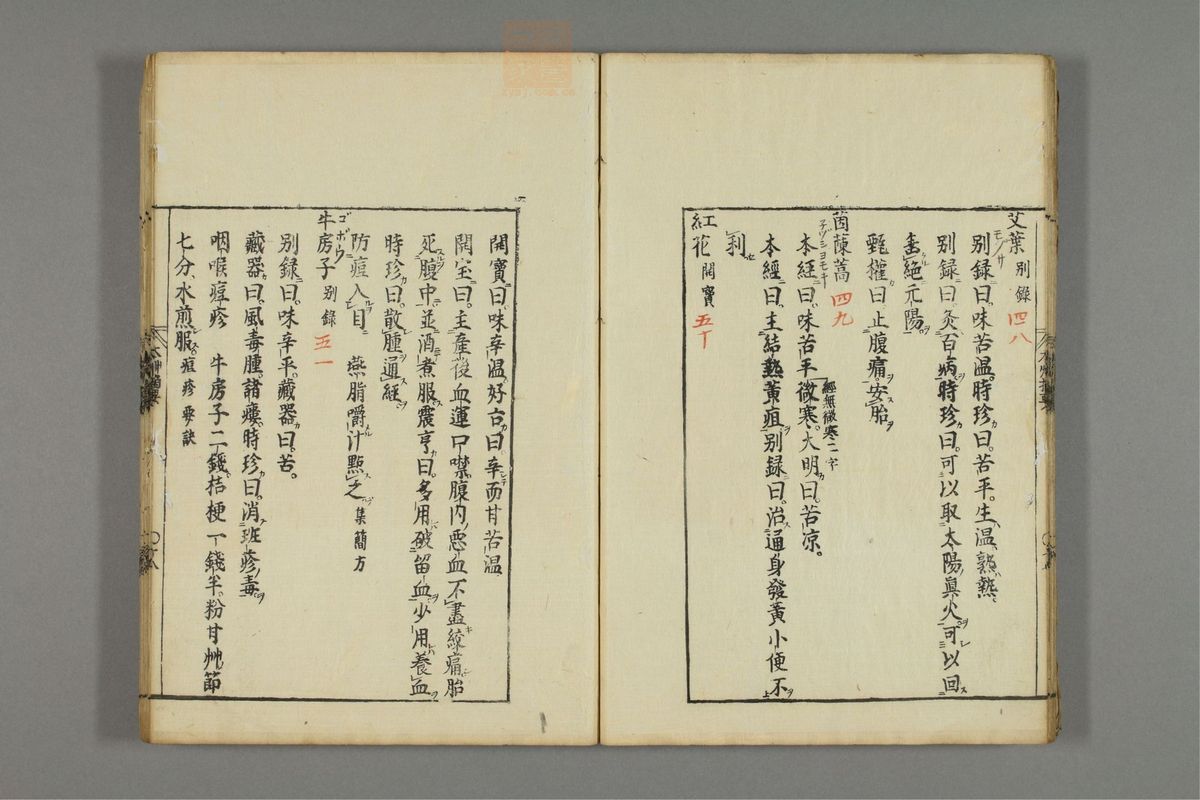 艾葉 別錄 四八
別録曰味苦温時珍曰苦平生温熟熱
別録曰灸百病時珍曰可以取太陽真火可以回
垂絶元陽
甄權曰止腹痛安胎
茵蔯蒿 四九
本經曰味苦平微寒 經無微寒二字 大明曰苦凉
本經曰主結熱黄疸別録曰治通身發黄小便不
利
紅花 開寶 五十
開寶曰味辛温好古曰辛而甘苦温
開宝曰主産後血運口噤腹内惡血不盡絞痛胎
死腹中並酒煮服震亨曰多用破留血少用養血
時珍曰散腫通経
防痘入目 燕脂嚼汁點之 集簡方
牛房子 別録 五一
ゴボウ
別録曰味辛平藏器曰苦
藏器曰風毒腫諸瘻時珍曰消班疹毒
咽喉痘疹 牛房子二錢桔梗一錢半粉甘艸節
七分水煎服 痘疹要訣